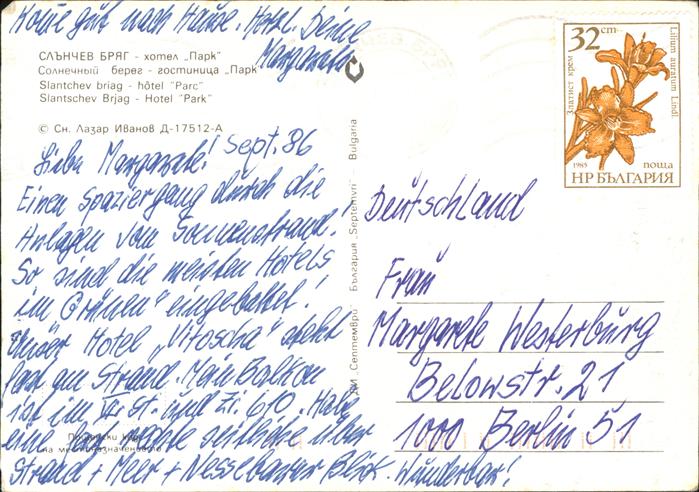 Komme gut nach Hause. Herzl. Deine
Margarete
СЛЪНЧЕВ БРЯГ - хотел „Парк“
Солнечный берег - гостиница „Парк“
Slantchev briag - hôtel "Parc"
Slantschev Brjag - Hotel "Park"
© Сн. Лазар Иванов Д-17512-А
Liebe Margarete! Sept. 86
Einen Spaziergang durch die
Anlagen vom Sonnenstrand!
So sind die meisten Hotels
„im Grünen“ eingebettet!
Unser Hotel „Vitoscha“ steht
fast am Strand. Mein Balkon
ist im VI. St. und Zi. 610. Habe
eine seitliche über
Strand + Meer + Nessebar Blick. Wunderbar!
Пощенски код
на местоназначението
ДИ „Септември“ България "Septemvri" - Bulgaria
32 ст
Златист крем
Lilium auratum Lindl.
1985
поща
НР БЪЛГАРИЯ
Deutschland
Frau
Margarete Westerburg
Belowstr. 21
1000 Berlin 51